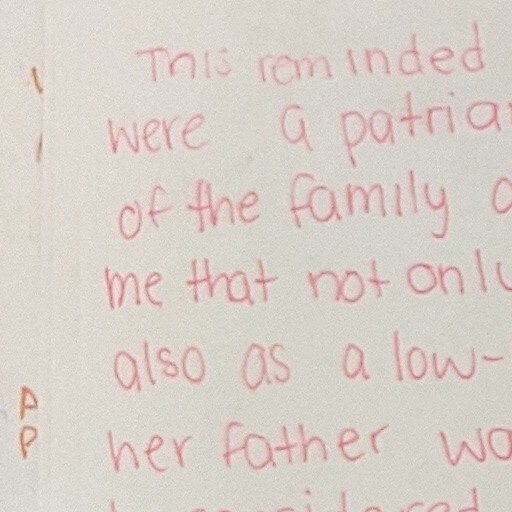 This reminded
were a patria
of the family
me that not only
also as a low-
her father wa
considered
A
P